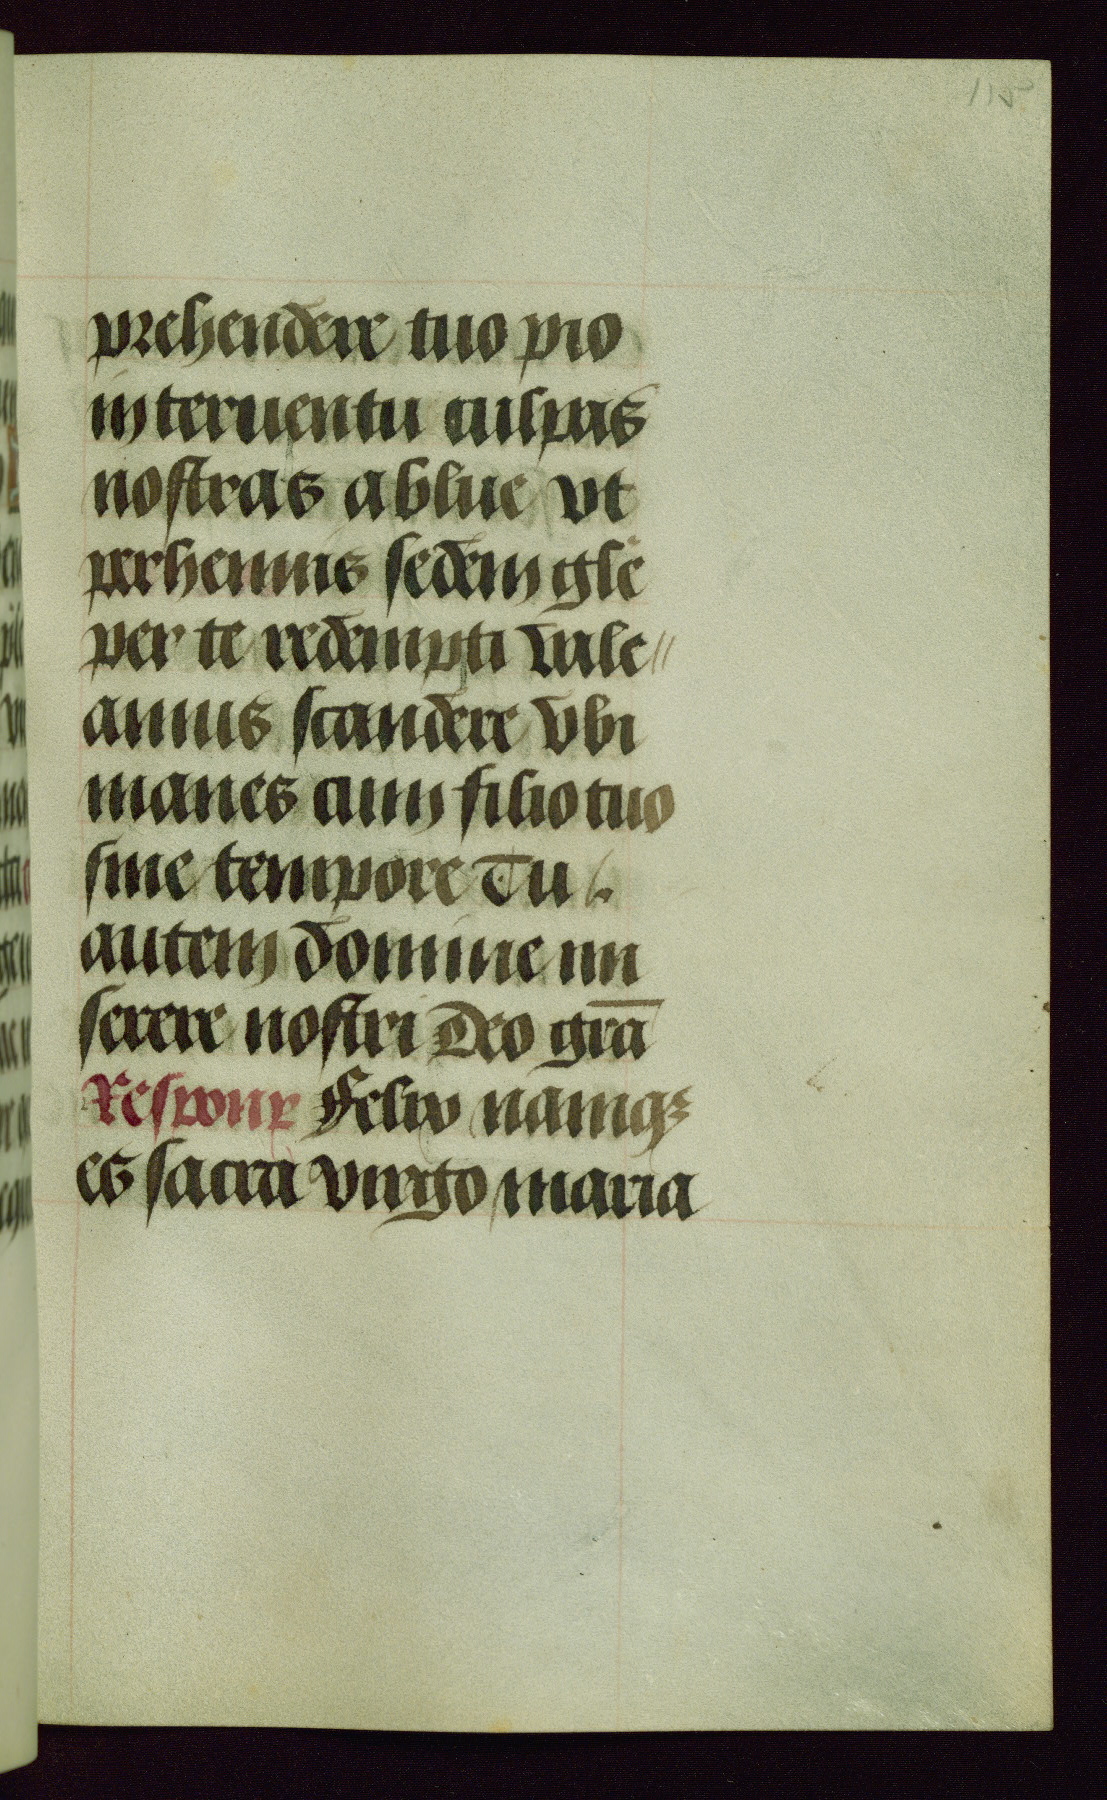 115
prehendere tuo pio
interuentu culpas
nostras ablue vt
perhennis sedem glē
per te redempti vale//
amus scandere vbi
manes cum filio tuo
sine tempore Tu
autem domine mi
serere nostri Deo grā
Respons Felix namqꝫ
es sacra virgo maria